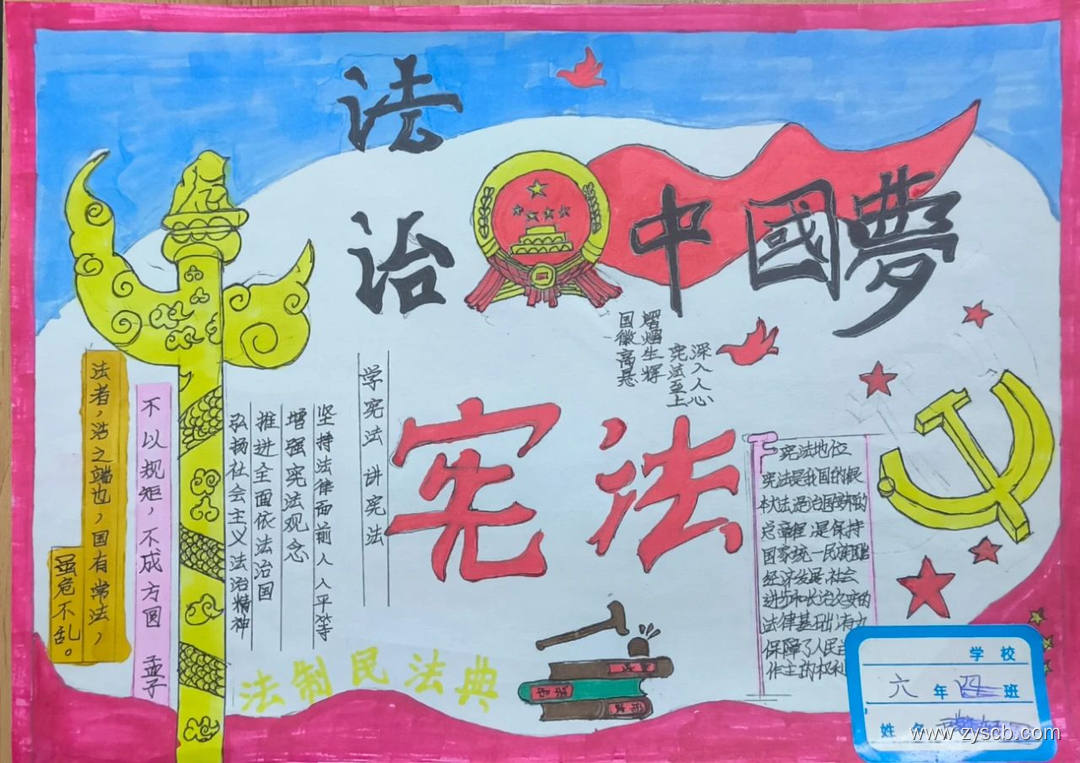 法治中國夢
国徽高悬
熠熠生辉
宪法至上
深入人心
宪法
学宪法 讲宪法
坚持法律面前人人平等
增强宪法观念
推进全面依法治国
弘扬社会主义法治精神
不以规矩,不成方圆 孟子
法者,治之端也,国有常法,
虽危不乱。
宪法地位
宪法是我国的根
本大法,是治国安邦的
总章程,是保持
国家统一、民族团结
经济发展、社会
进步和长治久安的
法律基础,有力
保障了人民
作主的权利
法制民法典
学校
六年四班
姓名
www.zyscb.com